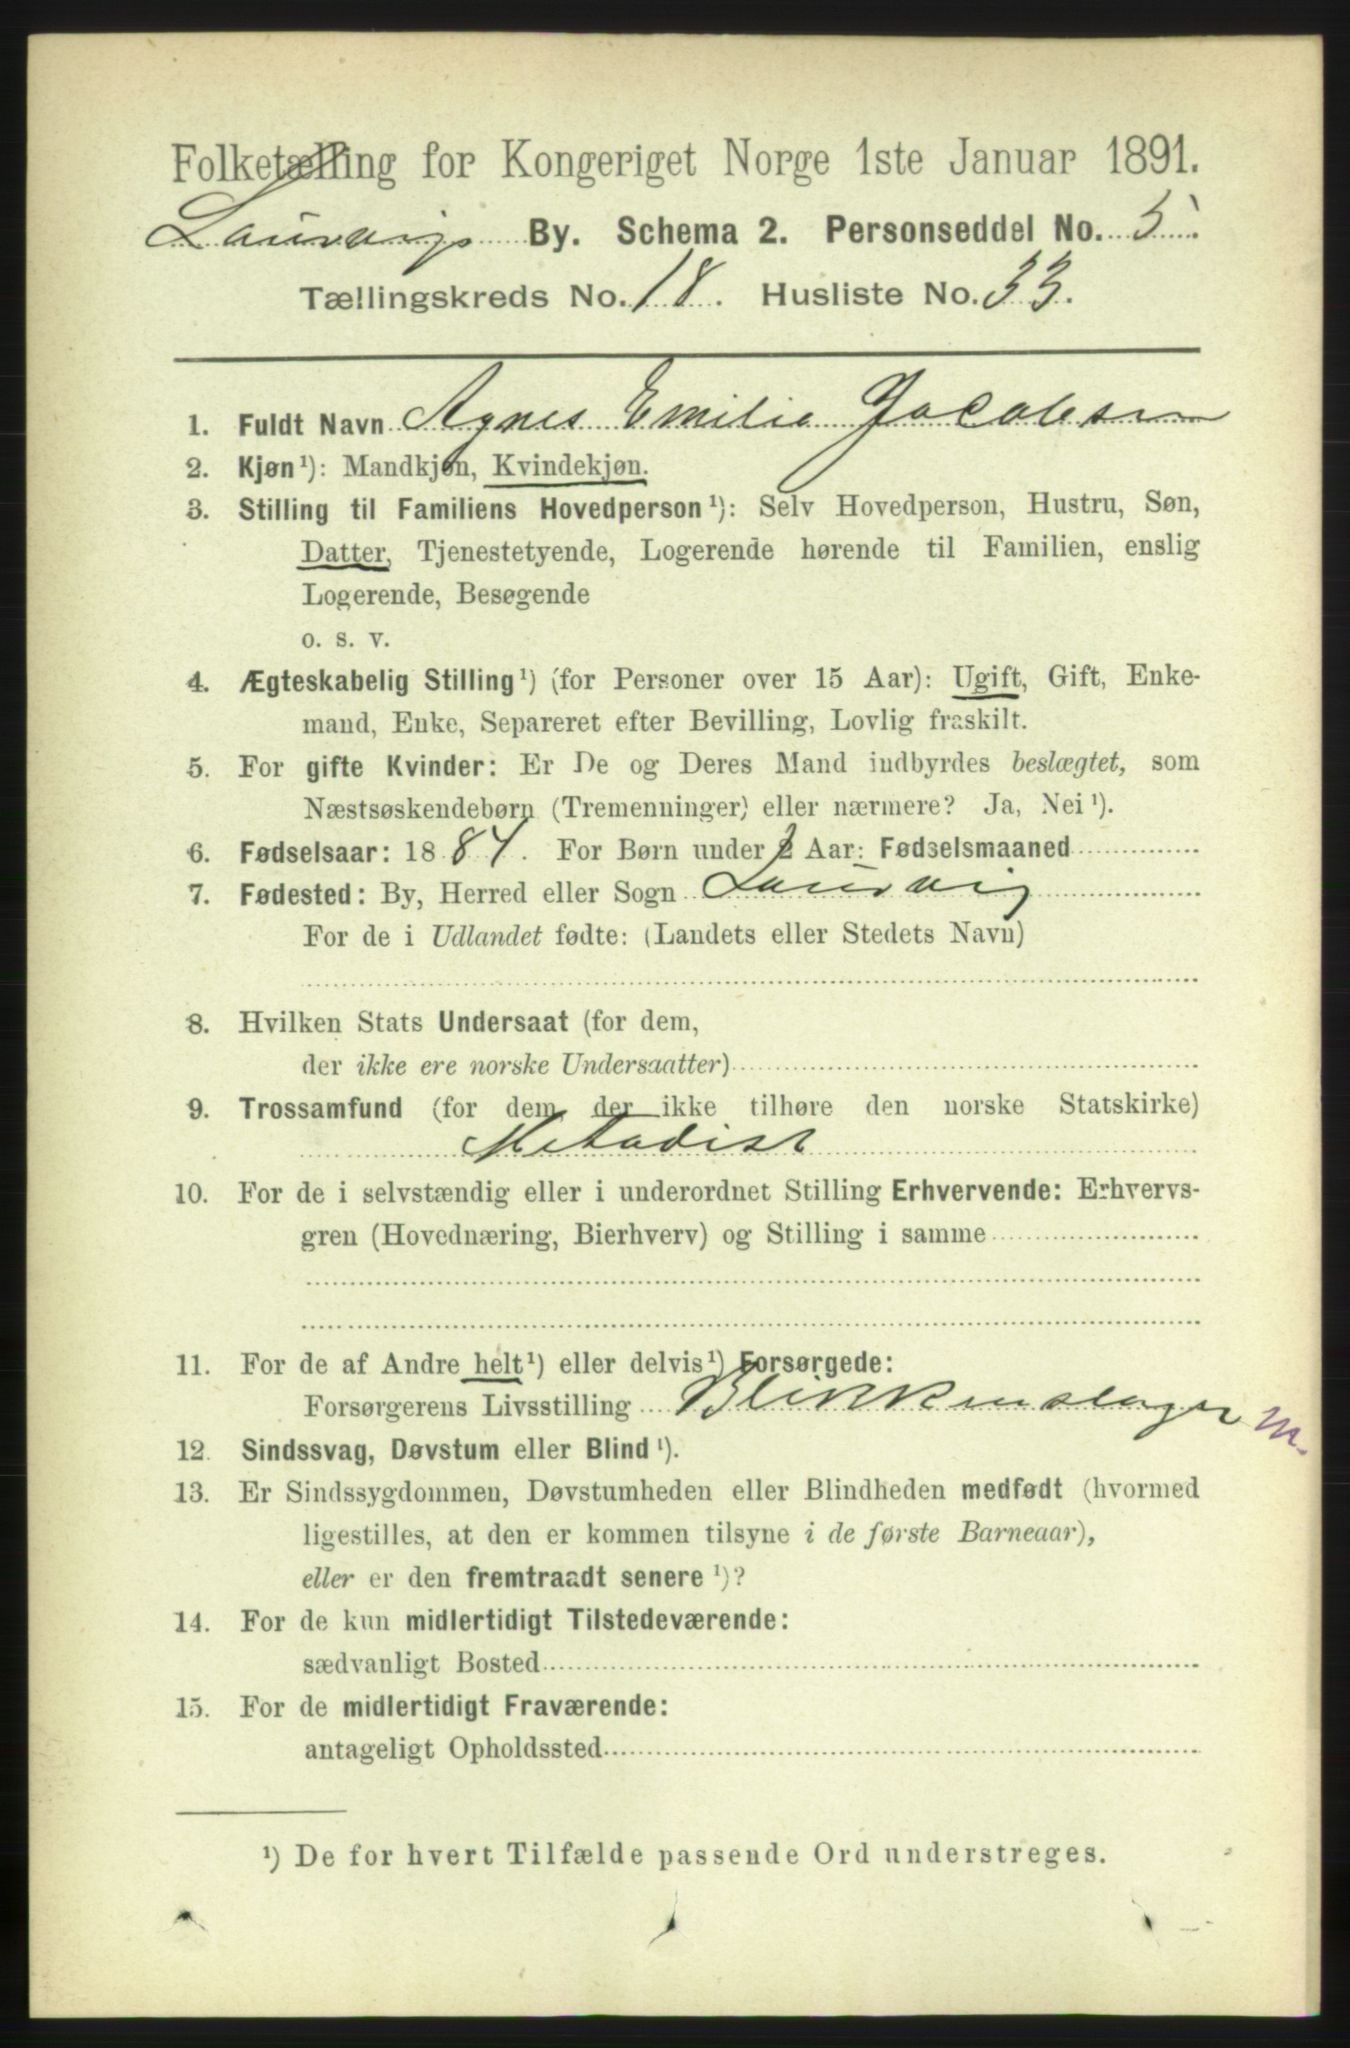 Folketælling for Kongeriget Norge 1ste Januar 1891.
Laurvigs By. Schema 2. Personseddel No. 5.
Tællingskreds No. 18. Husliste No. 33.
1. Fuldt Navn Agnes Emilie Jacobsen
2. Kjøn¹): Mandkjøn, Kvindekjøn.
3. Stilling til Familiens Hovedperson¹): Selv Hovedperson, Hustru, Søn,
Datter, Tjenestetyende, Logerende hørende til Familien, enslig
Logerende, Besøgende
o. s. v.
4. Ægteskabelig Stilling¹) (for Personer over 15 Aar): Ugift, Gift, Enke-
mand, Enke, Separeret efter Bevilling, Lovlig fraskilt.
5. For gifte Kvinder: Er De og Deres Mand indbyrdes beslægtet, som
Næstsøskendebørn (Tremenninger) eller nærmere? Ja, Nei¹).
6. Fødselsaar: 1884. For Børn under 2 Aar: Fødselsmaaned
7. Fødested: By, Herred eller Sogn Laurvig
For de i Udlandet fødte: (Landets eller Stedets Navn)
8. Hvilken Stats Undersaat (for dem,
der ikke ere norske Undersaatter)
9. Trossamfund (for dem der ikke tilhøre den norske Statskirke)
Metodist
10. For de i selvstændig eller i underordnet Stilling Erhvervende: Erhvervs-
gren (Hovednæring, Bierhverv) og Stilling i samme
11. For de af Andre helt¹) eller delvis¹) Forsørgede:
Forsørgerens Livsstilling Blikkenslager m.
12. Sindssvag, Døvstum eller Blind¹).
13. Er Sindssygdommen, Døvstumheden eller Blindheden medfødt (hvormed
ligestilles, at den er kommen tilsyne i de første Barneaar),
eller er den fremtraadt senere¹)?
14. For de kun midlertidigt Tilstedeværende:
sædvanligt Bosted
15. For de midlertidigt Fraværende:
antageligt Opholdssted
¹) De for hvert Tilfælde passende Ord understreges.